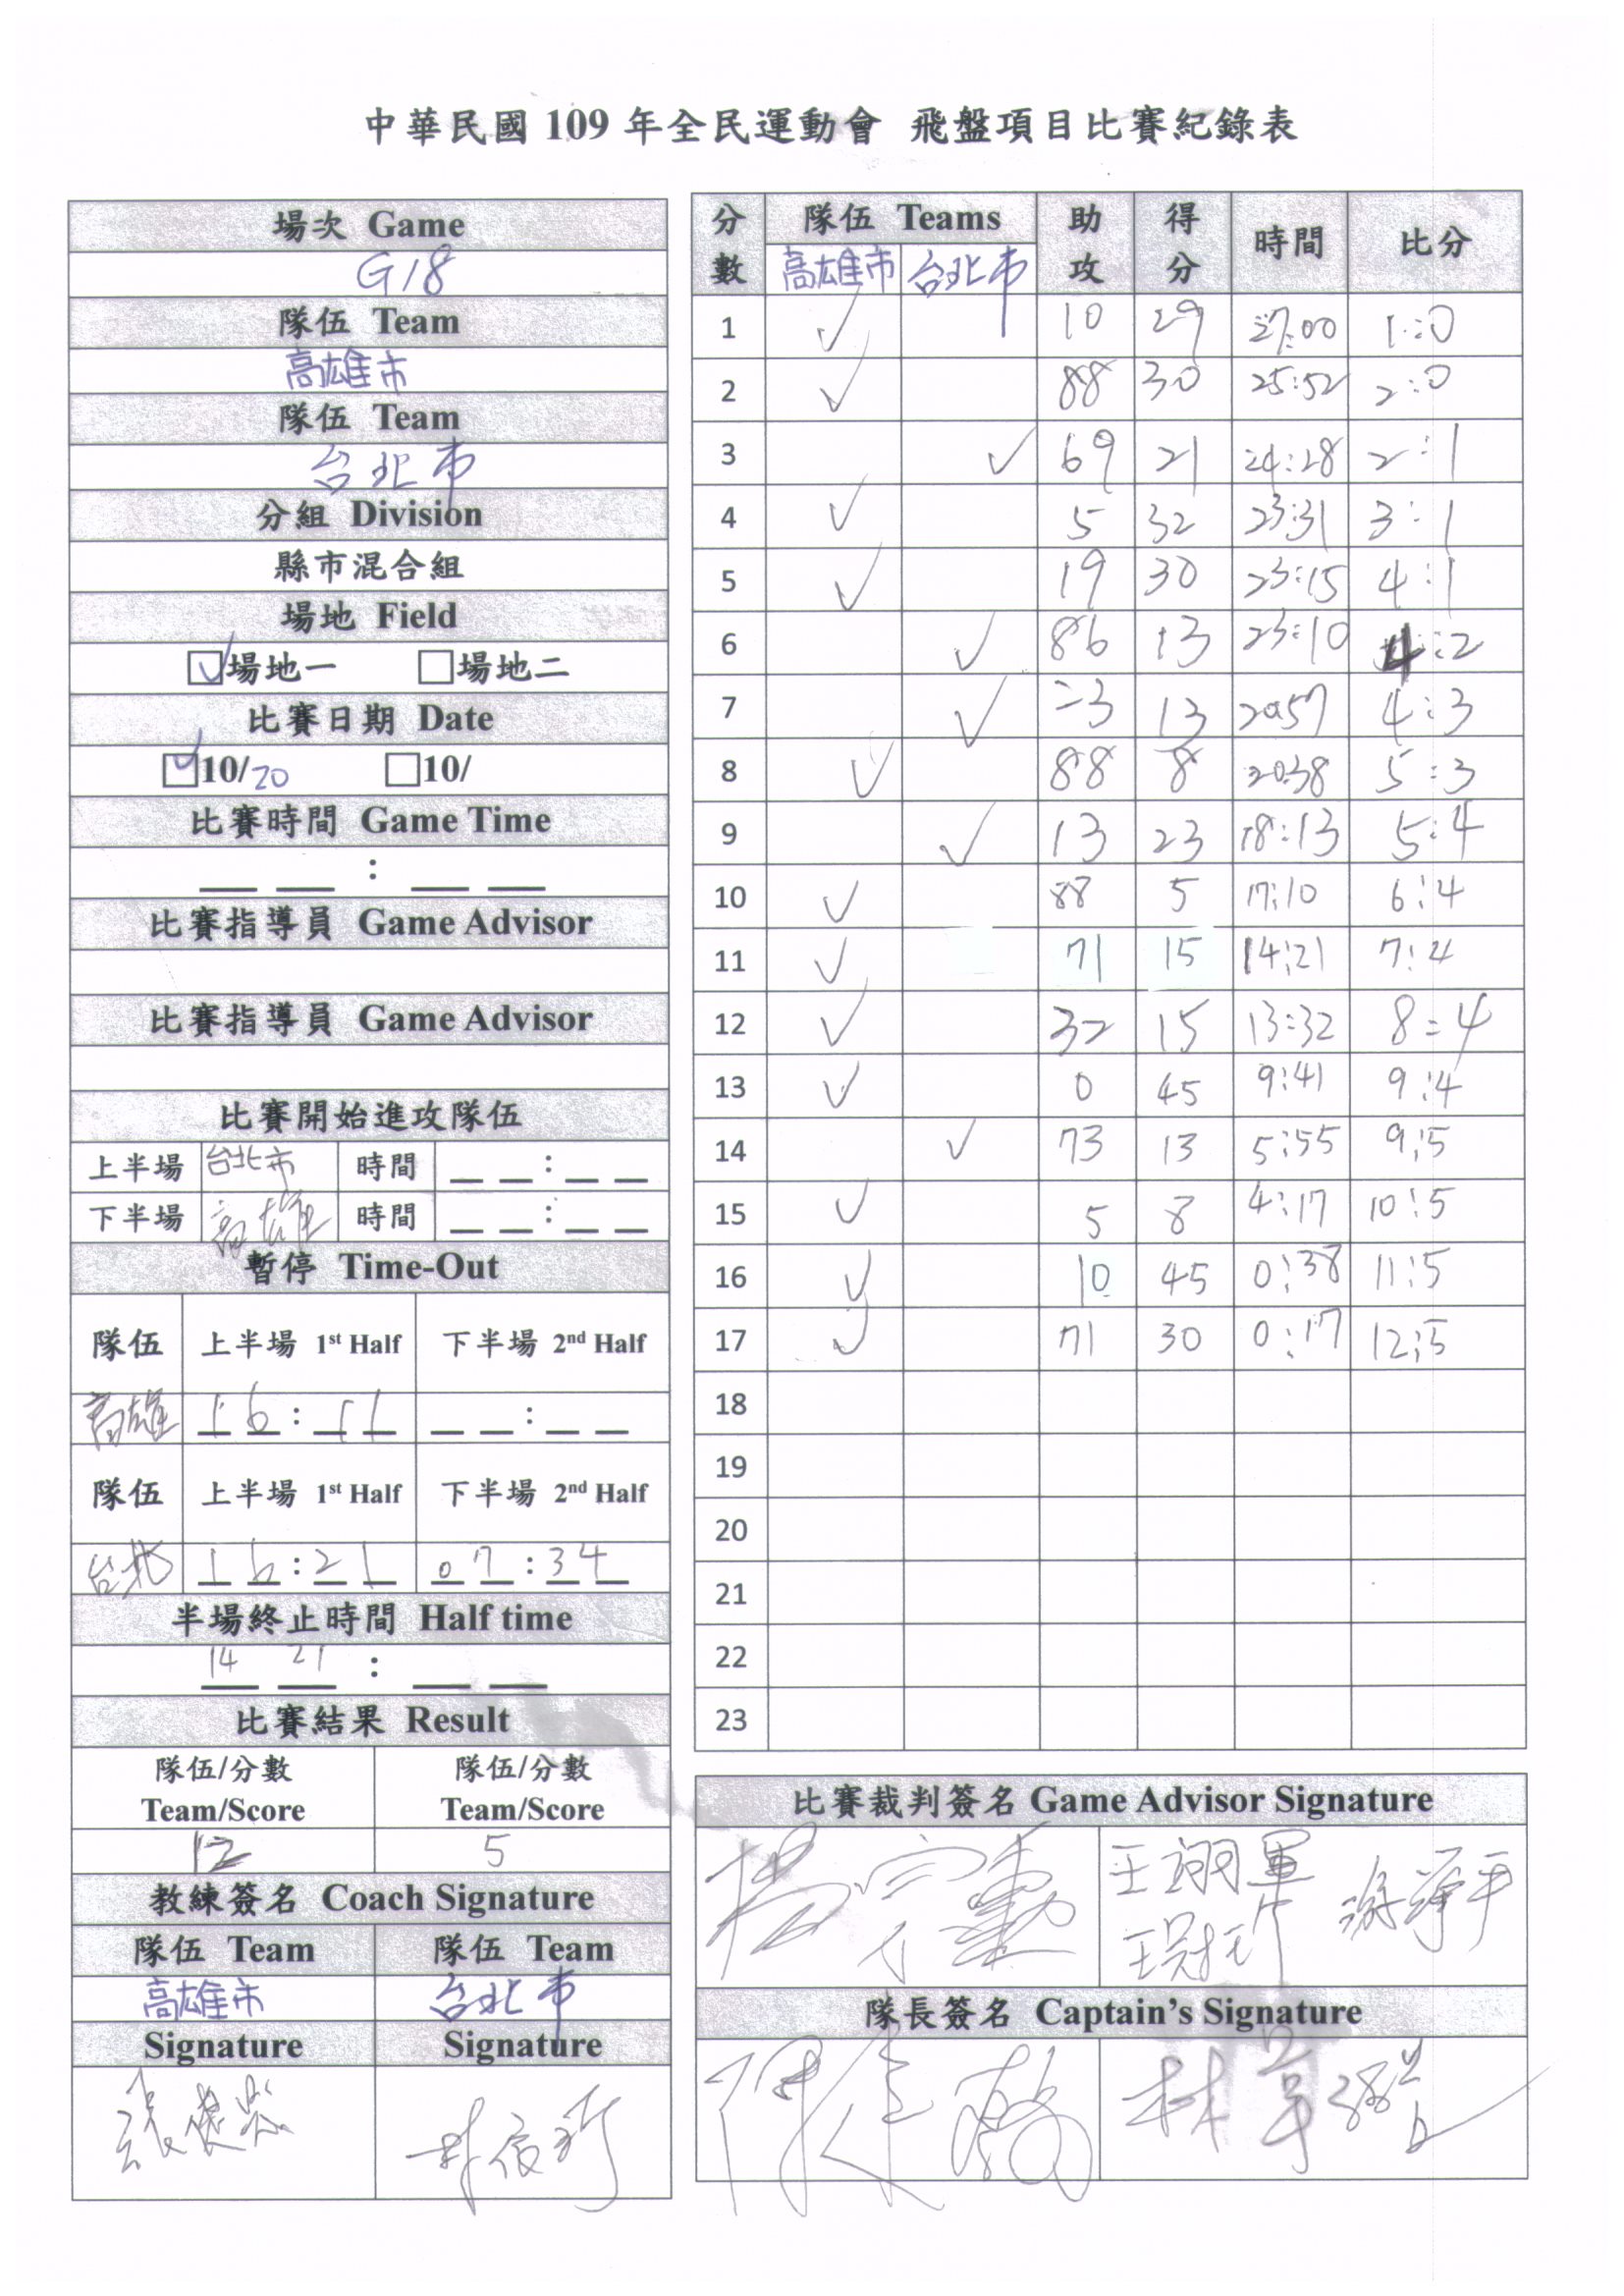 中華民國 109 年全民運動會 飛盤項目比賽紀錄表
場次 Game
G18
隊伍 Team
高雄市
隊伍 Team
台北市
分組 Division
縣市混合組
場地 Field
場地一 場地二
比賽日期 Date
10/20 10/
比賽時間 Game Time
__ __ : __ __
比賽指導員 Game Advisor
比賽指導員 Game Advisor
比賽開始進攻隊伍
上半場 台北市 時間 __ __ : __ __
下半場 高雄 時間 __ __ : __ __
暫停 Time-Out
隊伍 上半場 1st Half 下半場 2nd Half
高雄 16:11 __ __ : __ __
隊伍 上半場 1st Half 下半場 2nd Half
台北 16:21 07:34
半場終止時間 Half time
14 21 : __ __
比賽結果 Result
隊伍/分數 隊伍/分數
Team/Score Team/Score
12 5
教練簽名 Coach Signature
隊伍 Team 隊伍 Team
高雄市 台北市
Signature Signature
分數 隊伍 Teams 助攻 得分 時間 比分
高雄市 台北市
1 ✓ 10 29 27:00 1:0
2 ✓ 88 30 25:52 2:0
3 ✓ 69 21 24:28 2:1
4 ✓ 5 32 23:31 3:1
5 ✓ 19 30 23:15 4:1
6 ✓ 86 13 23:10 4:2
7 ✓ 23 13 20:57 4:3
8 ✓ 88 8 20:38 5:3
9 ✓ 13 23 18:13 5:4
10 ✓ 88 5 17:10 6:4
11 ✓ 71 15 14:21 7:4
12 ✓ 32 15 13:32 8:4
13 ✓ 0 45 9:41 9:4
14 ✓ 73 13 5:55 9:5
15 ✓ 5 8 4:17 10:5
16 ✓ 10 45 0:38 11:5
17 ✓ 71 30 0:17 12:5
18
19
20
21
22
23
比賽裁判簽名 Game Advisor Signature
隊長簽名 Captain's Signature